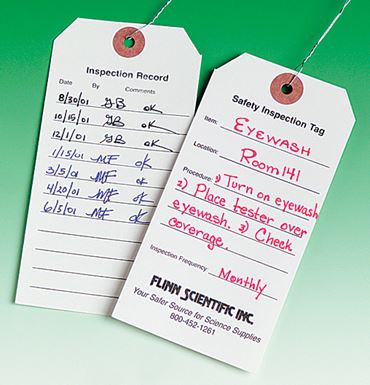 Inspection Record
Date By Comments
8/30/01 GB ok
10/15/01 GB ok
12/1/01 GB ok
1/15/01 MF ok
3/5/01 MF ok
4/20/01 MF ok
6/5/01 MF ok
Safety Inspection Tag
Item: EYEWASH
Location: Room 141
Procedure: 1) Turn on eyewash
2) Place tester over
eyewash. 3) Check
coverage.
Inspection Frequency Monthly
FLINN SCIENTIFIC INC.
Your Safer Source for Science Supplies
800-452-1261